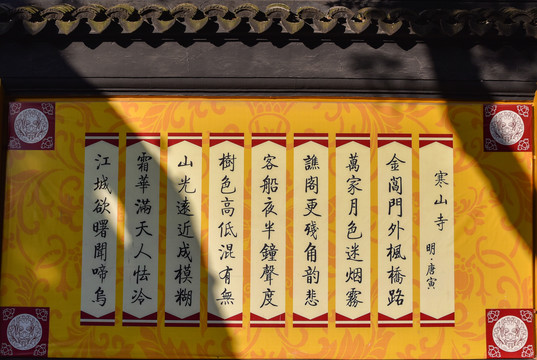 寒山寺
明·唐寅
金閶門外楓橋路
萬家月色迷烟霧
譙閣更殘角韵悲
客船夜半鐘聲度
樹色高低混有無
山光遠近成模糊
霜華滿天人怯冷
江城欲曙聞啼烏